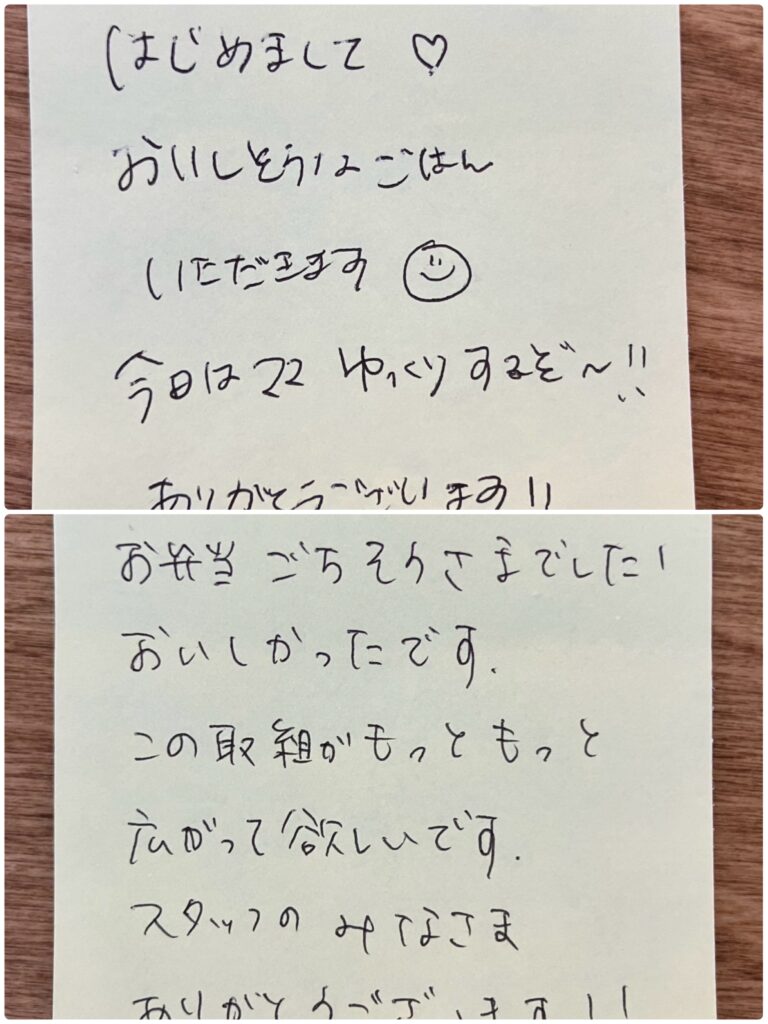 はじめまして♡
おいしそうなごはん
いただきます☺
今日はママ ゆっくりするぞ〜!!
ありがとうございます!!
お弁当 ごちそうさまでした!
おいしかったです.
この取組がもっともっと
広がって欲しいです.
スタッフの みなさま
ありがとうございます!!